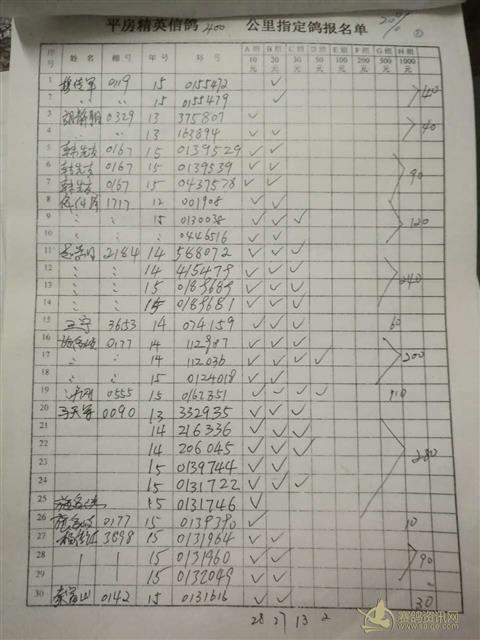 平房精英信鸽400公里指定鸽报名单 20% ②
序号 姓名 棚号 年号 环号 A组10元 B组20元 C组30元 D组50元 E组100元 F组200元 G组500元 H组1000元
1 0119 15 0155472 ✓
2 〃 〃 15 0155479 ✓ >40
3 0329 13 375807 ✓
4 〃 〃 13 163894 ✓ ✓ >40
5 0167 15 0139529 ✓ ✓
6 0167 15 0139539 ✓ ✓
7 0167 15 0437578 ✓ ✓ >90
8 1717 12 001908 ✓ ✓
9 〃 〃 15 0130038 ✓ ✓ ✓
10 〃 〃 0446516 ✓ ✓ >120
11 2184 14 588072 ✓ ✓ ✓
12 〃 〃 14 415479 ✓ ✓ ✓
13 〃 〃 15 0189689 ✓ ✓ ✓
14 〃 〃 15 0189681 ✓ ✓ ✓ >240
15 王宁 3653 14 074159 ✓ ✓ ✓ 60
16 0177 14 112987 ✓ ✓ ✓
17 〃 〃 14 112036 ✓ ✓ ✓ ✓
18 〃 〃 15 0124018 ✓ ✓ >200
19 0555 15 0162351 ✓ ✓ ✓ ✓ 110
20 马天军 0090 13 332935 ✓ ✓ ✓
21 14 216336 ✓ ✓ ✓
22 14 206045 ✓ ✓ ✓
23 15 0139744 ✓ ✓
24 15 0131722 ✓ ✓ ✓ >280
25 15 0131746 ✓
26 0177 15 0139390 ✓ 10
27 3898 15 0131964 ✓ ✓
28 15 0131960 ✓ ✓
29 15 0132049 ✓ ✓ >90
30 0142 15 0131616 ✓ ✓ 30
28 27 13 2
赛鸽资讯网
www.saige.com